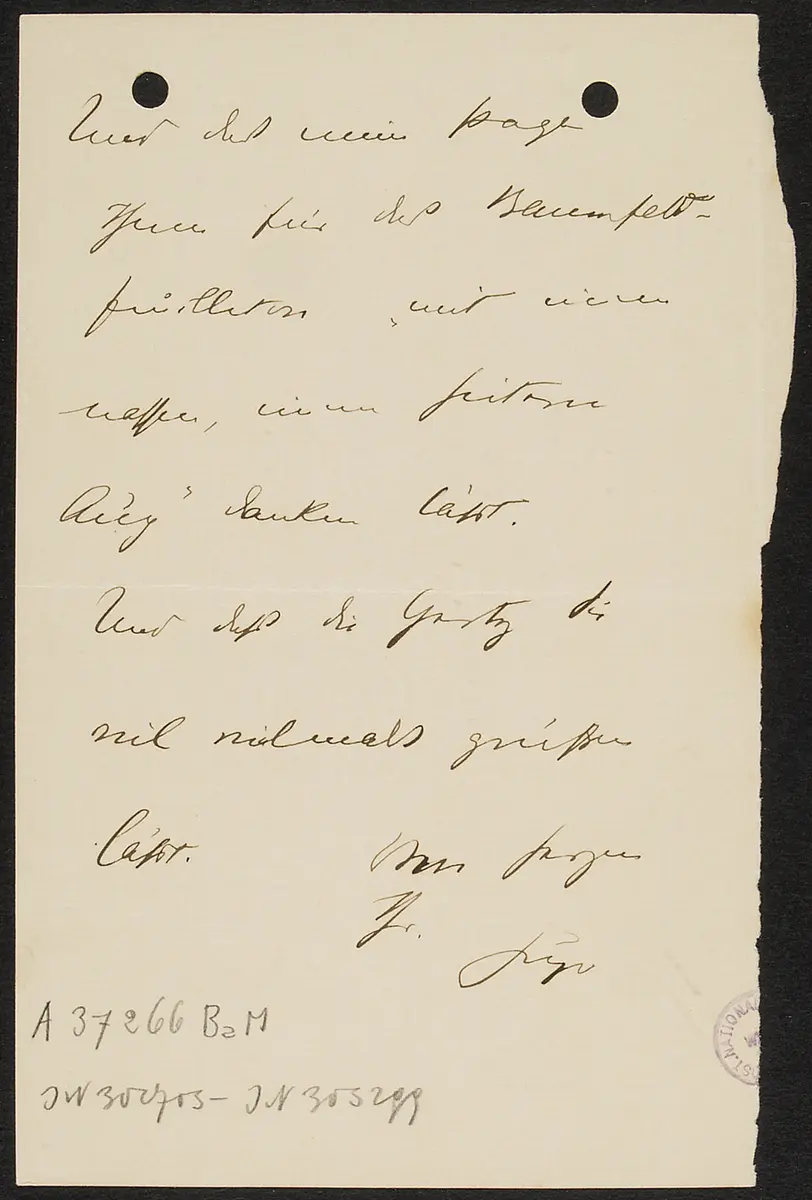 Und daß mein
Ihnen für das Bauernfeld-
feuilleton „mit einem
nassen, einem heitern
Aug" danken läßt.
Und daß die Sie
viel vielmals grüßen
läßt. Von Herzen
Ihr
A 37266 BaM
JN 302703 - JN 305299